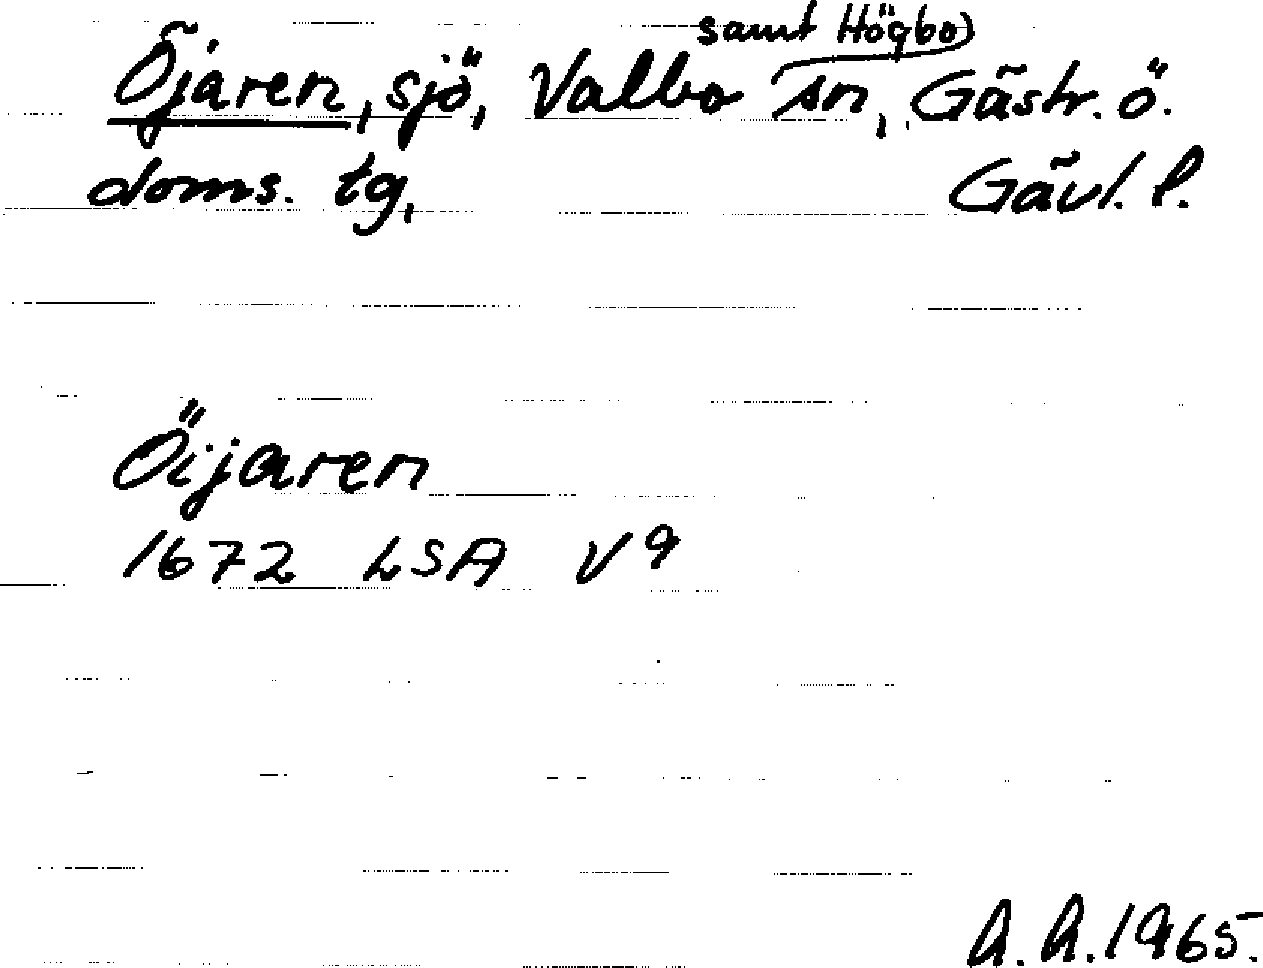 samt Högbo
Öjaren, sjö, Valbo sn, Gästr. ö.
doms. tg, Gävl. l.
Öijaren
1672 LSA V 9
A. A. 1965.